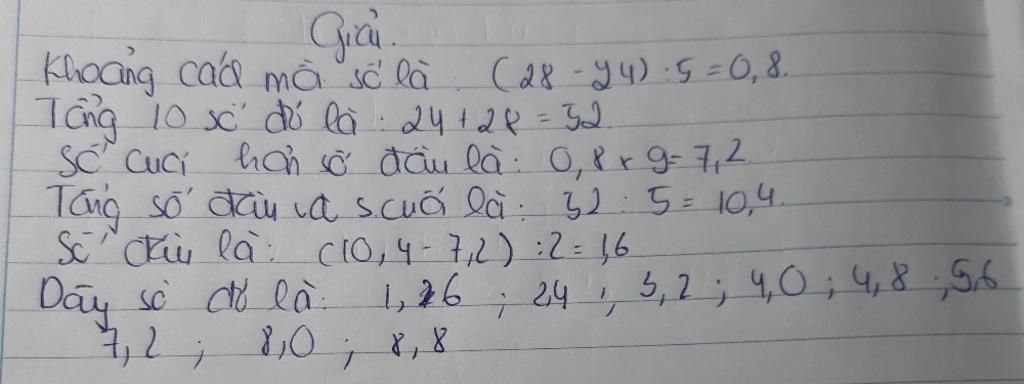 Giải.
Khoảng cách mỗi số là: (28 - 24) : 5 = 0,8.
Tổng 10 số đó là: 24 + 28 = 52
Số cuối hơn số đầu là: 0,8 x 9 = 7,2
Tổng số đầu và s.cuối là: 52 : 5 = 10,4.
Số đầu là: (10,4 - 7,2) : 2 = 1,6
Dãy số đó là: 1,6 ; 2,4 ; 3,2 ; 4,0 ; 4,8 ; 5,6
7,2 ; 8,0 ; 8,8